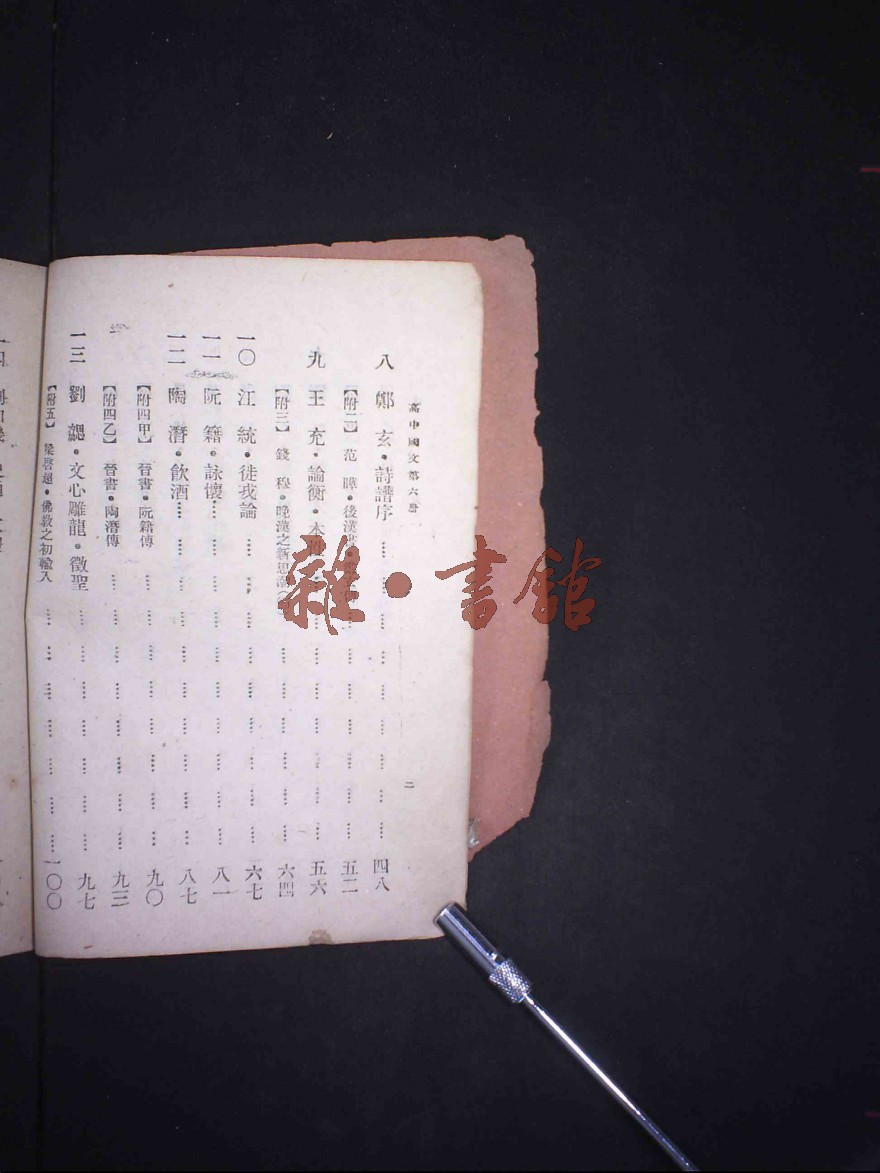 高中國文第六册
二
八 鄭玄•詩譜序 四八
【附二】 范曄•後漢書 五二
九 王充•論衡•本性 五六
【附三】 錢穆•晚漢之新思潮 六四
一〇 江統•徙戎論 六七
一一 阮籍•詠懷 八一
一二 陶潛•飲酒 八七
【附四甲】 晉書•阮籍傳 九〇
【附四乙】 晉書•陶潛傳 九三
一三 劉勰•文心雕龍•徵聖 九七
【附五】 梁啓超•佛教之初輸入 一〇〇
雜•書館